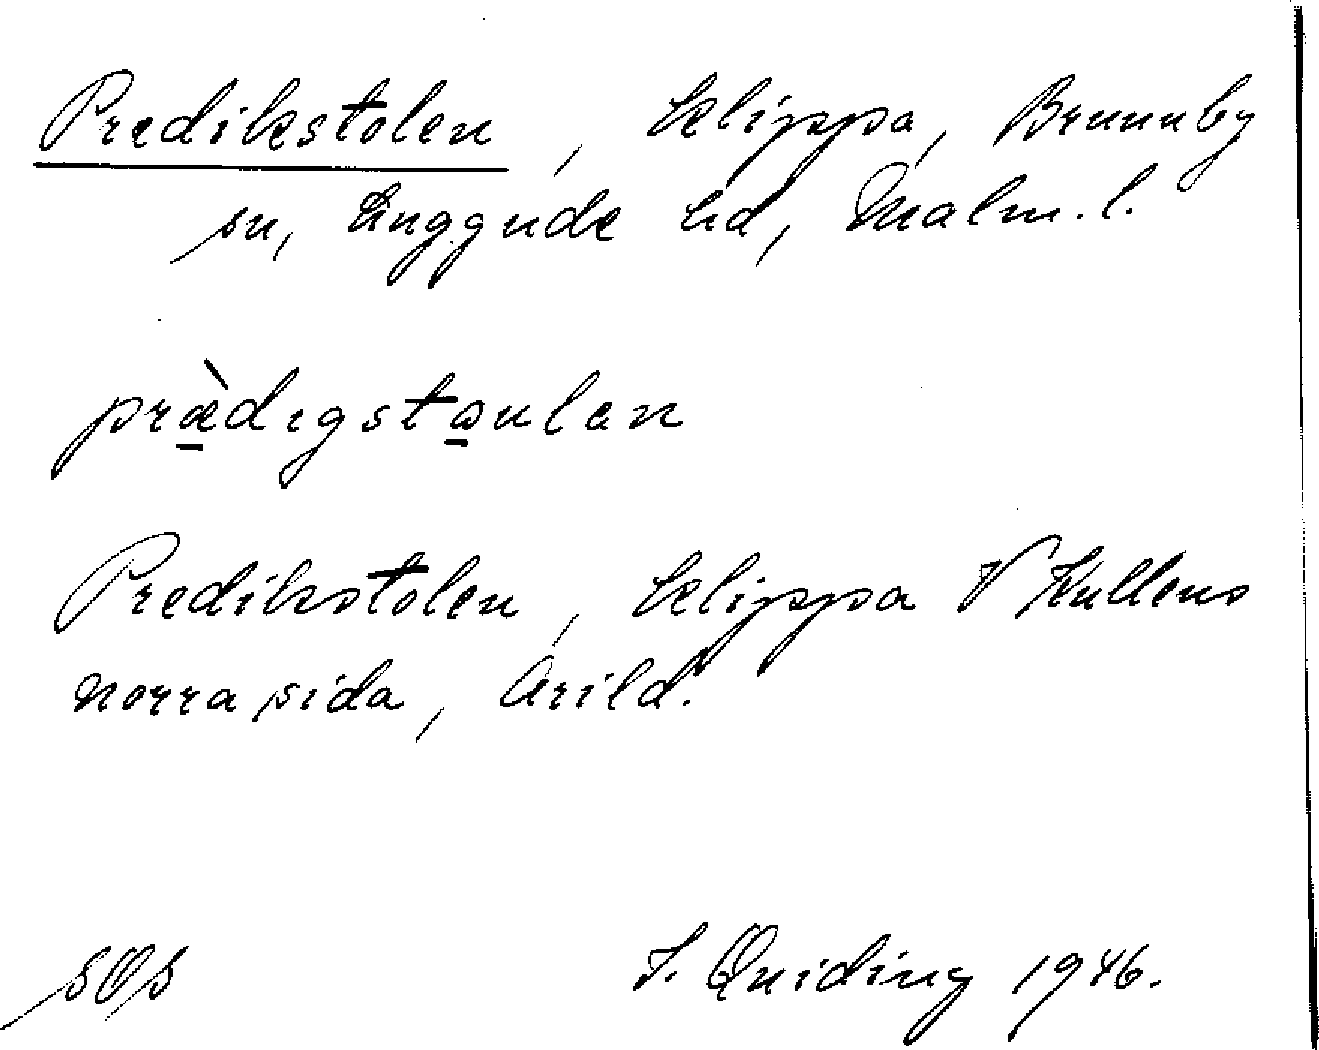 Predikstolen, klippa, Brunnby
sn, Luggude hd, Malm. l.
præ̀digstaulen
Predikstolen, klippa V Kullens
norra sida, Arild.
SOS
I. Quiding 1946.